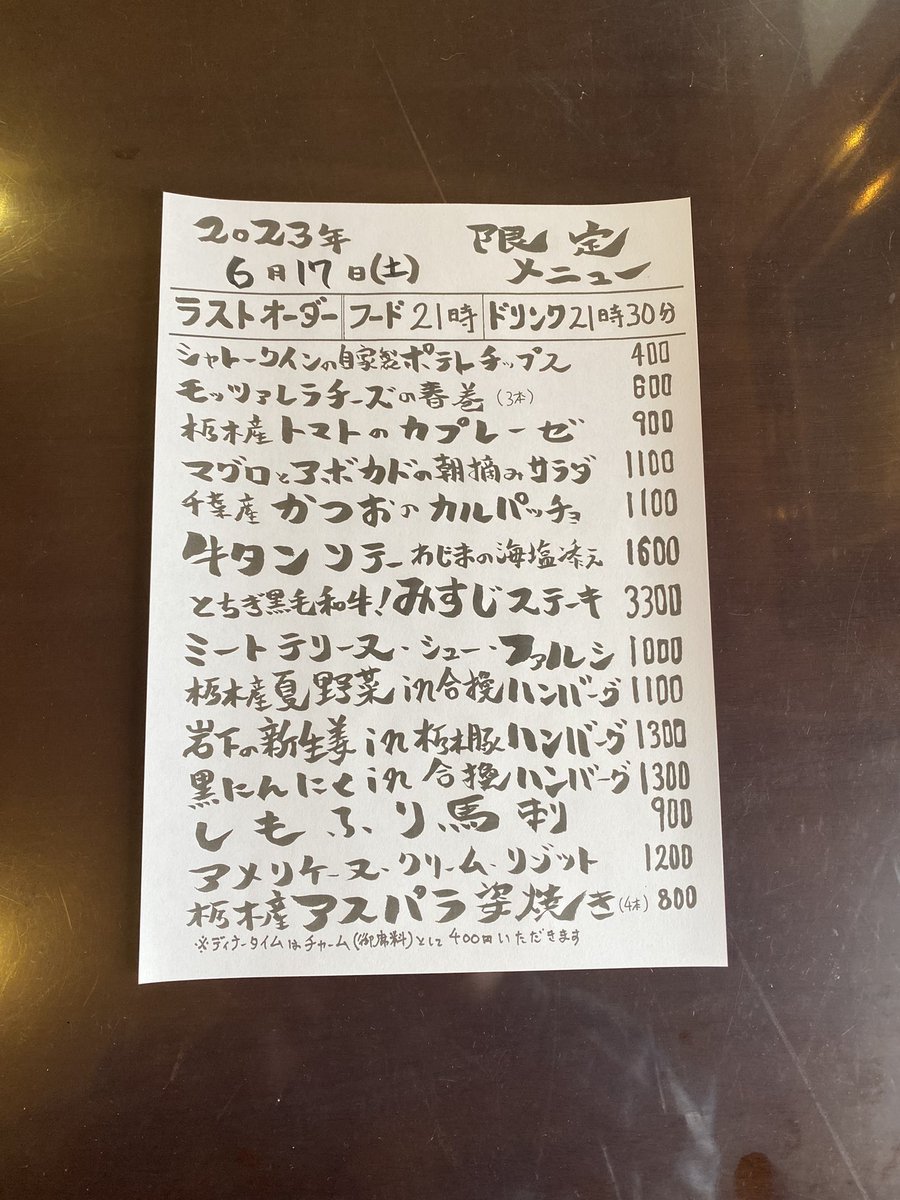 2023年 限定
6月17日(土) メニュー
ラストオーダー フード21時 ドリンク21時30分
シャトークインの自家製ポテトチップス 400
モッツァレラチーズの春巻(3本) 600
栃木産トマトのカプレーゼ 900
マグロとアボカドの朝摘みサラダ 1100
千葉産かつおのカルパッチョ 1100
牛タンソテーわじまの海塩添え 1600
とちぎ黒毛和牛!みすじステーキ 3300
ミートテリーヌ・シュー・ファルシ 1000
栃木産夏野菜in合挽ハンバーグ 1100
岩下の新生姜in栃木豚ハンバーグ 1300
黒にんにくin合挽ハンバーグ 1300
しもふり馬刺 900
アメリケーヌ・クリーム・リゾット 1200
栃木産アスパラ姿焼き(4本) 800
※ディナータイムはチャーム(御席料)として400円いただきます